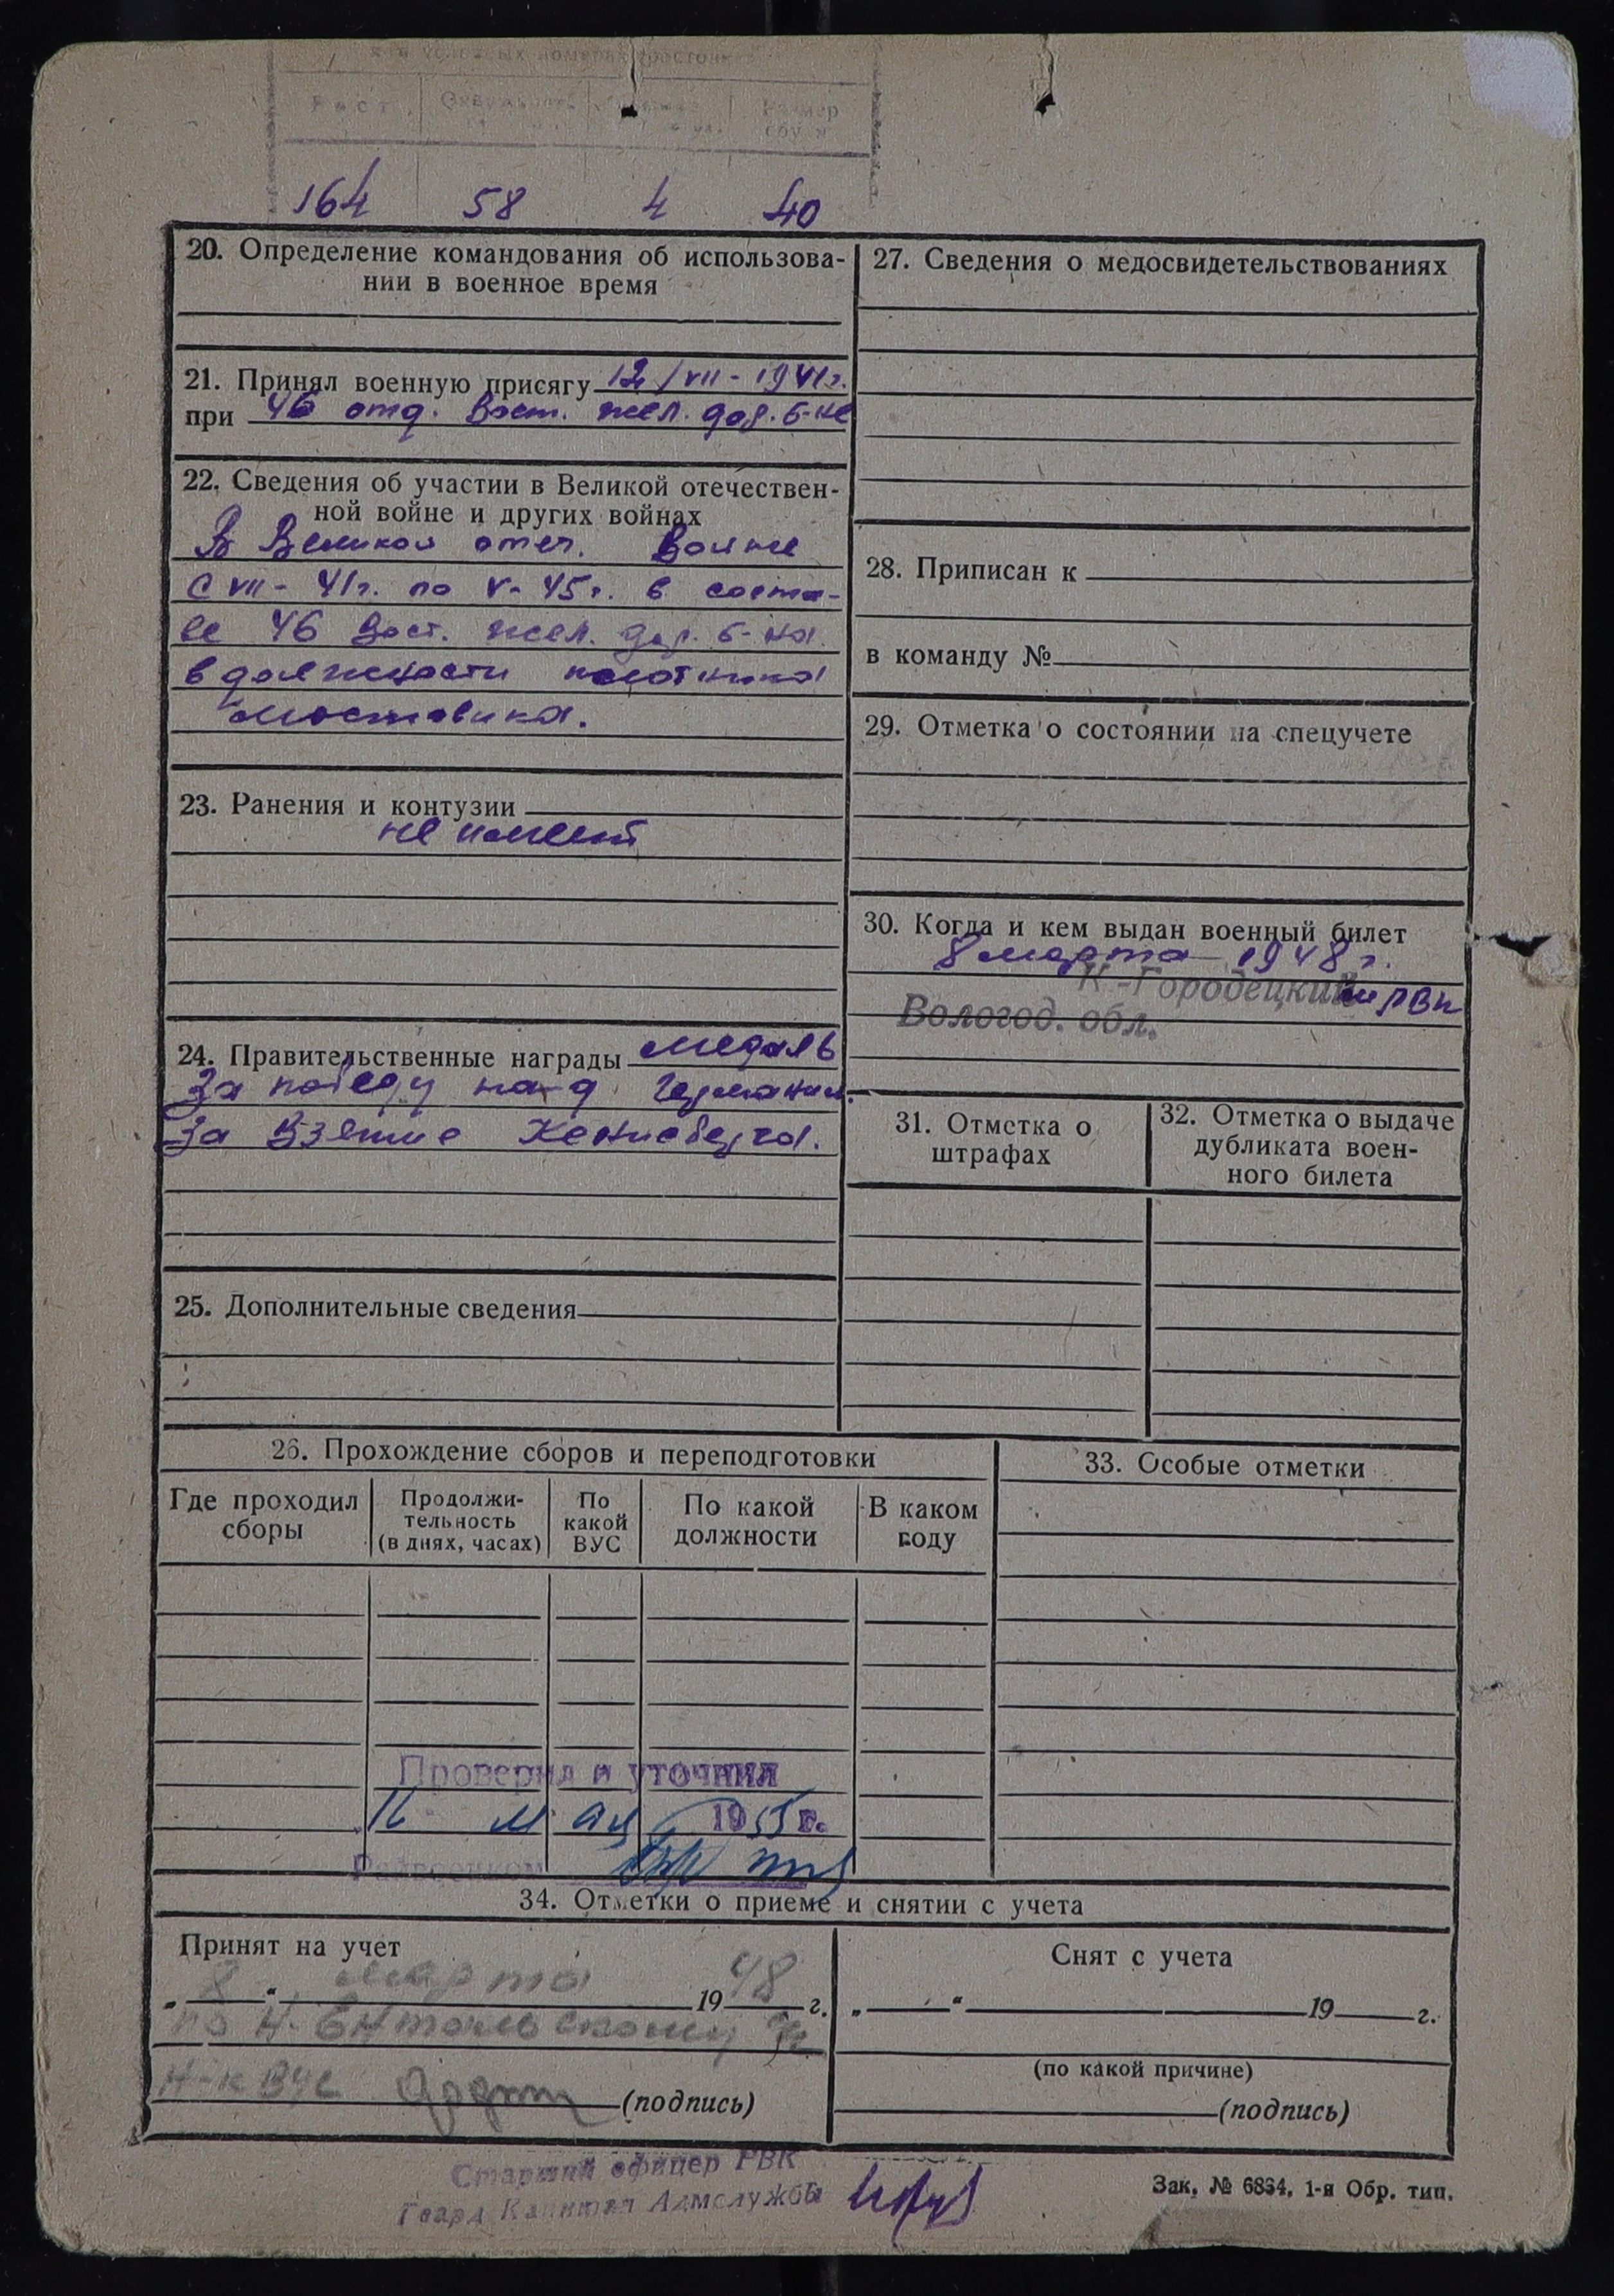 Рост
Размер
164 58 4 40
20. Определение командования об использова-
нии в военное время
21. Принял военную присягу 12/VII-1941г.
при 46 отд. Вост. жел. дор. б-не
22. Сведения об участии в Великой отечествен-
ной войне и других войнах
В Великой отеч. Войне
с VII-41г. по V-45г. в соста-
ве 46 Вост. жел. дор. б-на
в должности плотника
мостовика.
23. Ранения и контузии
не имеет
24. Правительственные награды медаль
За победу над Германией.
За Взятие Кенигсберга.
25. Дополнительные сведения
27. Сведения о медосвидетельствованиях
28. Приписан к
в команду №
29. Отметка о состоянии на спецучете
30. Когда и кем выдан военный билет
8 марта 1948 г.
К-Городецким РВК
Вологод. обл.
31. Отметка о
штрафах
32. Отметка о выдаче
дубликата воен-
ного билета
26. Прохождение сборов и переподготовки
Где проходил
сборы
Продолжи-
тельность
(в днях, часах)
По
какой
ВУС
По какой
должности
В каком
году
Проверил и уточнил
мая 1955 г.
33. Особые отметки
34. Отметки о приеме и снятии с учета
Принят на учет
„8“ марта 1948 г.
по Н-Ентальскому
Н-к ВУС (подпись)
Снят с учета
„ “ 19 г.
(по какой причине)
(подпись)
Старший офицер РВК
Гвард. Капитан Адмслужбы
Зак. № 6834. 1-я Обр. тип.